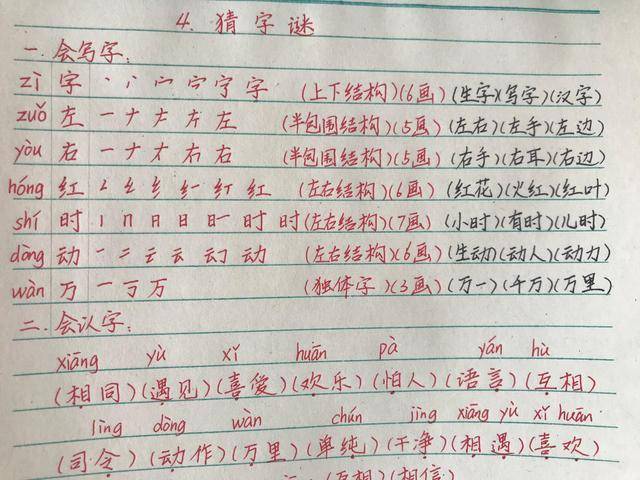 4. 猜字谜
一. 会写字:
zì 字 丶 丷 宀 宁 宇 字 (上下结构)(6画)(生字)(写字)(汉字)
zuǒ 左 一 ナ 𠂇 左 左 (半包围结构)(5画)(左右)(左手)(左边)
yòu 右 一 ナ 右 右 (半包围结构)(5画)(右手)(右耳)(右边)
hóng 红 纟 红 (左右结构)(6画)(红花)(火红)(红叶)
shí 时 丨 冂 日 日 时 时 (左右结构)(7画)(小时)(有时)(儿时)
dòng 动 一 二 云 云 动 (左右结构)(6画)(生动)(动人)(动力)
wàn 万 一 丂 万 (独体字)(3画)(万一)(千万)(万里)
二. 会认字:
xiāng yù xǐ huān pà yán hù
(相同)(遇见)(喜爱)(欢乐)(怕人)(语言)(互相)
lìng dòng wàn chún jìng xiāng yù xǐ huān
(司令)(动作)(万里)(单纯)(干净)(相遇)(喜欢)
(互相)(相信)